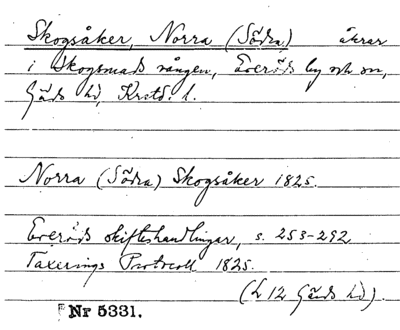 Skogsåker, Norra (Södra) åkrar
i Skogsmads vången, Everöds by och sn,
Gärds hd, Krstds. l.
Norra (Södra) Skogsåker 1825.
Everöds skifteshandlingar, s. 253-292
Taxerings Protocoll 1825.
(L 12 Gärds hd).
Nr 5331.